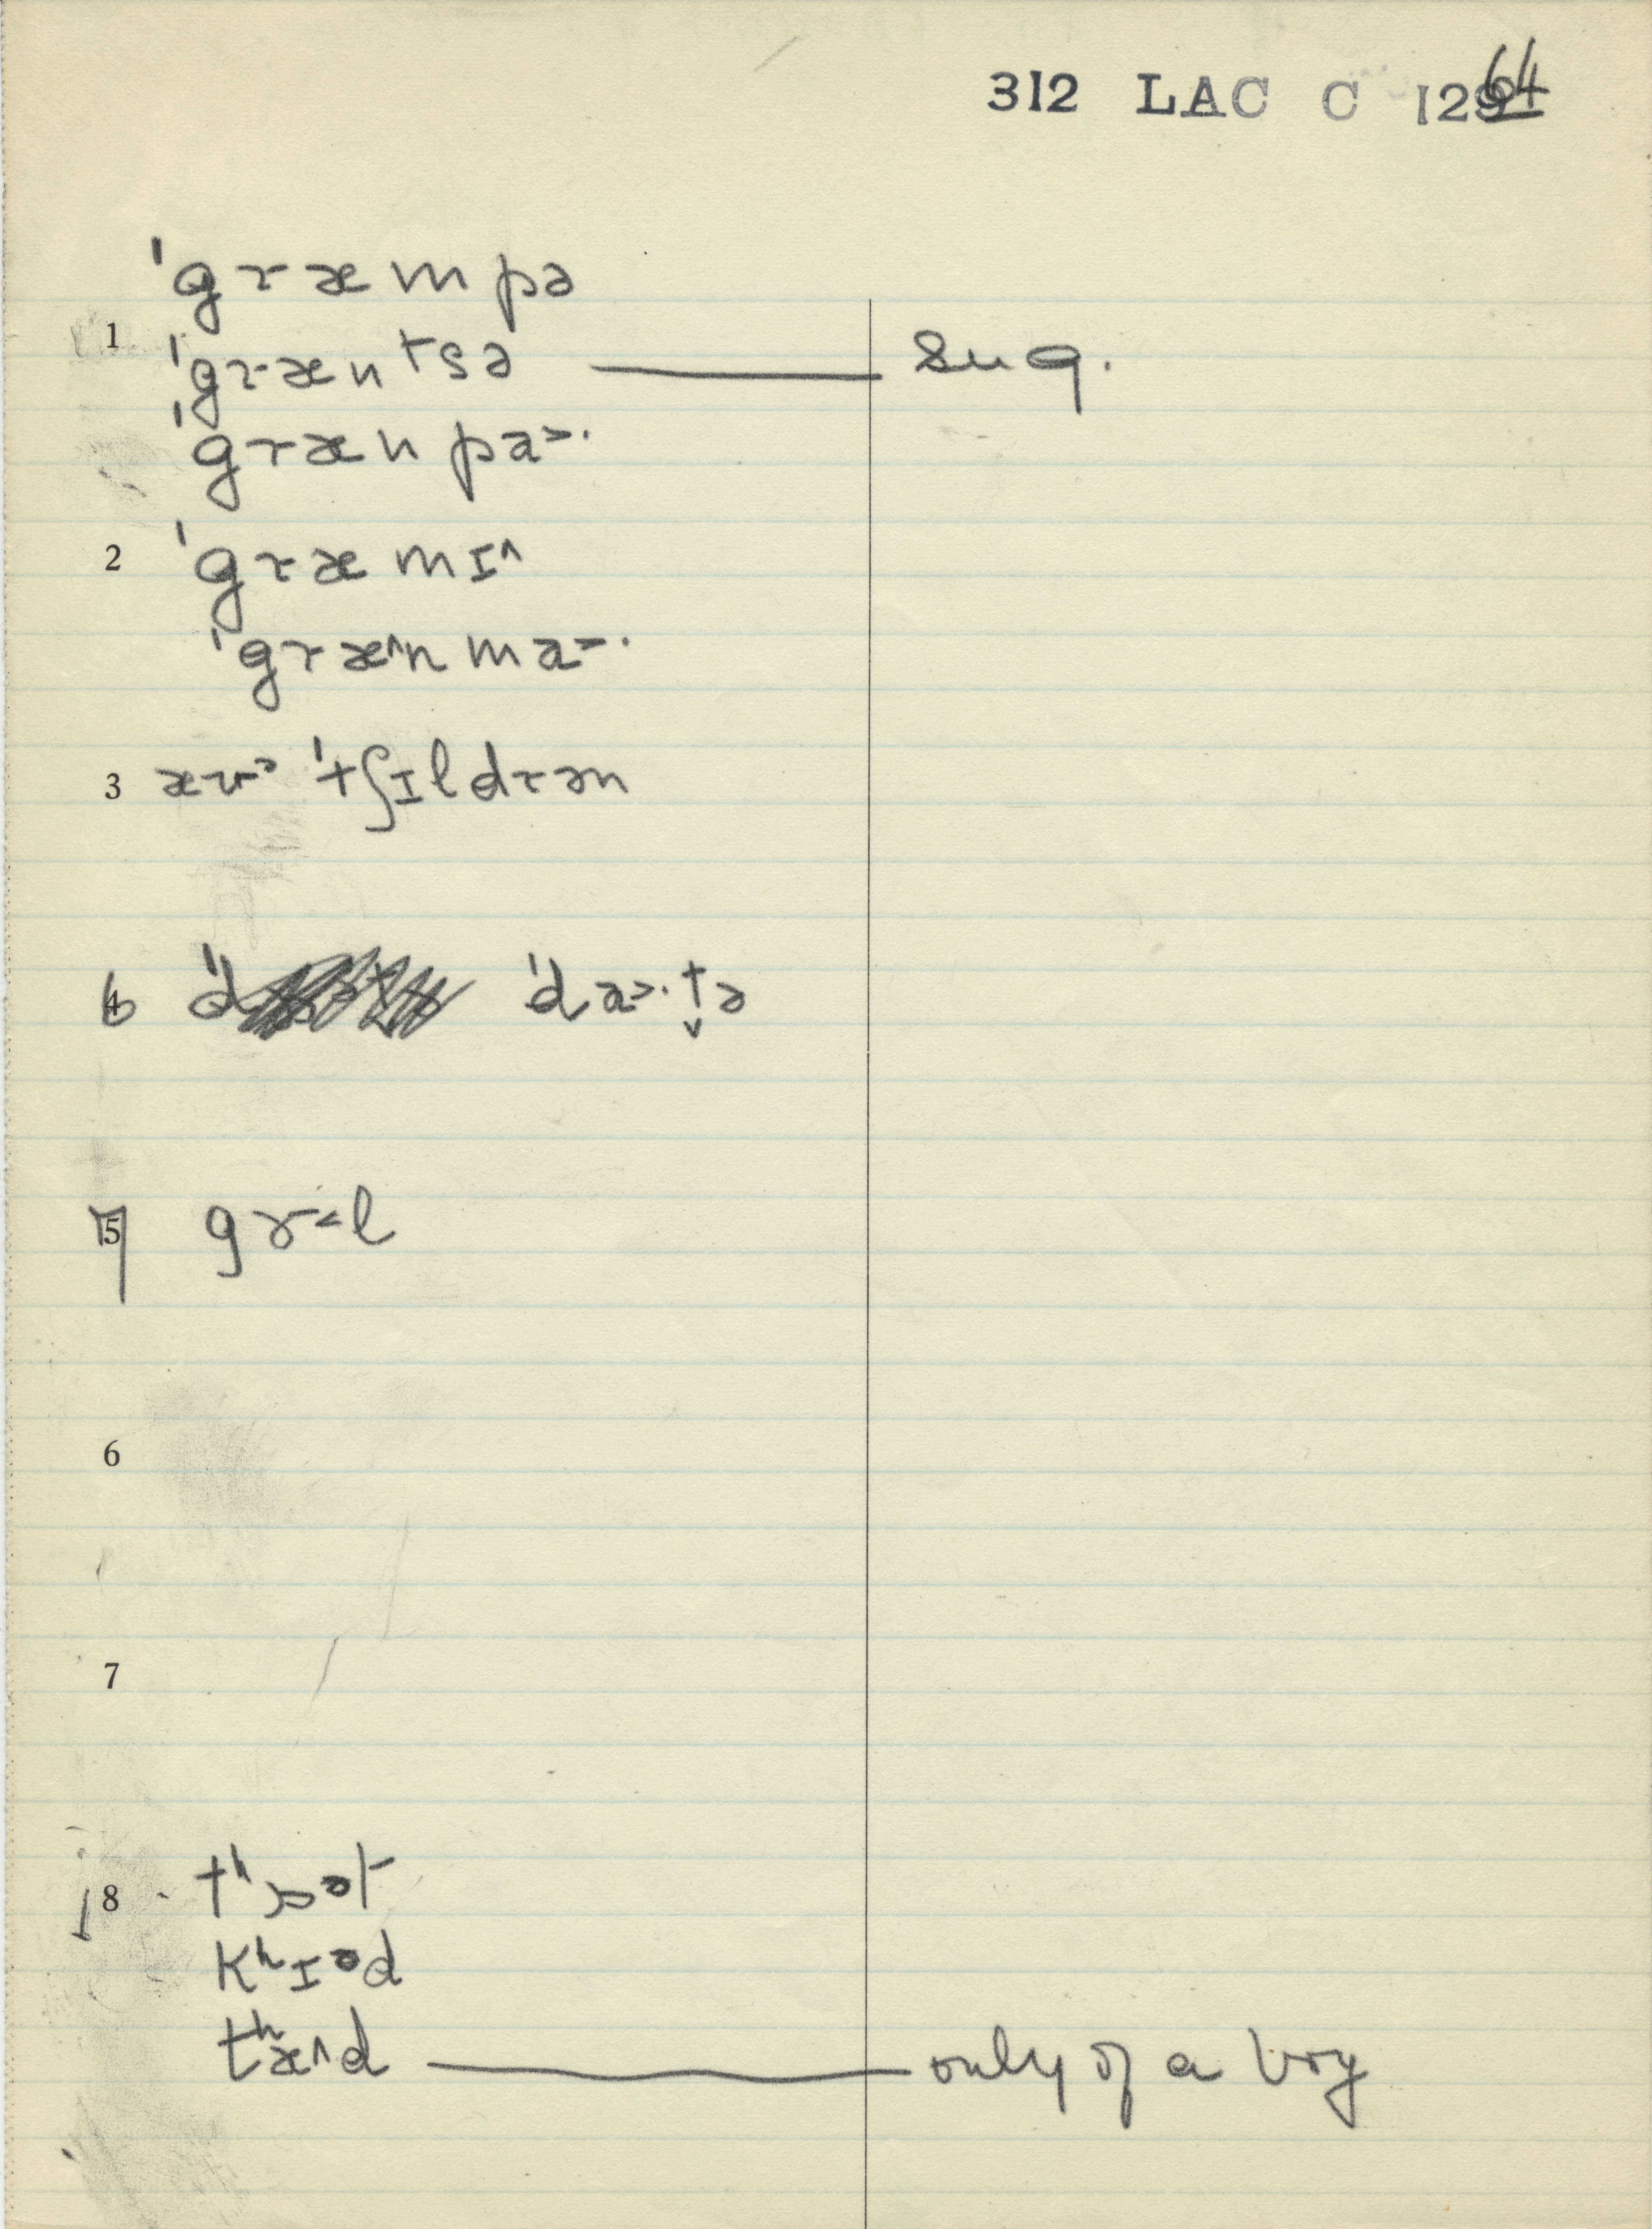 312 LAC C 1264
ˈgræmpə
1 ˈgræntsə — sug.
ˈgrænpa˃·
2 ˈgræmɪ˄
ˈgræ˄nma˃·
3 ˈtʃɪldrən
6 ˈda˃·t̬ə
7 gɤ˂l
8 tʰɒət
kʰɪəd
tʰæ˄d — only of a boy
6
7